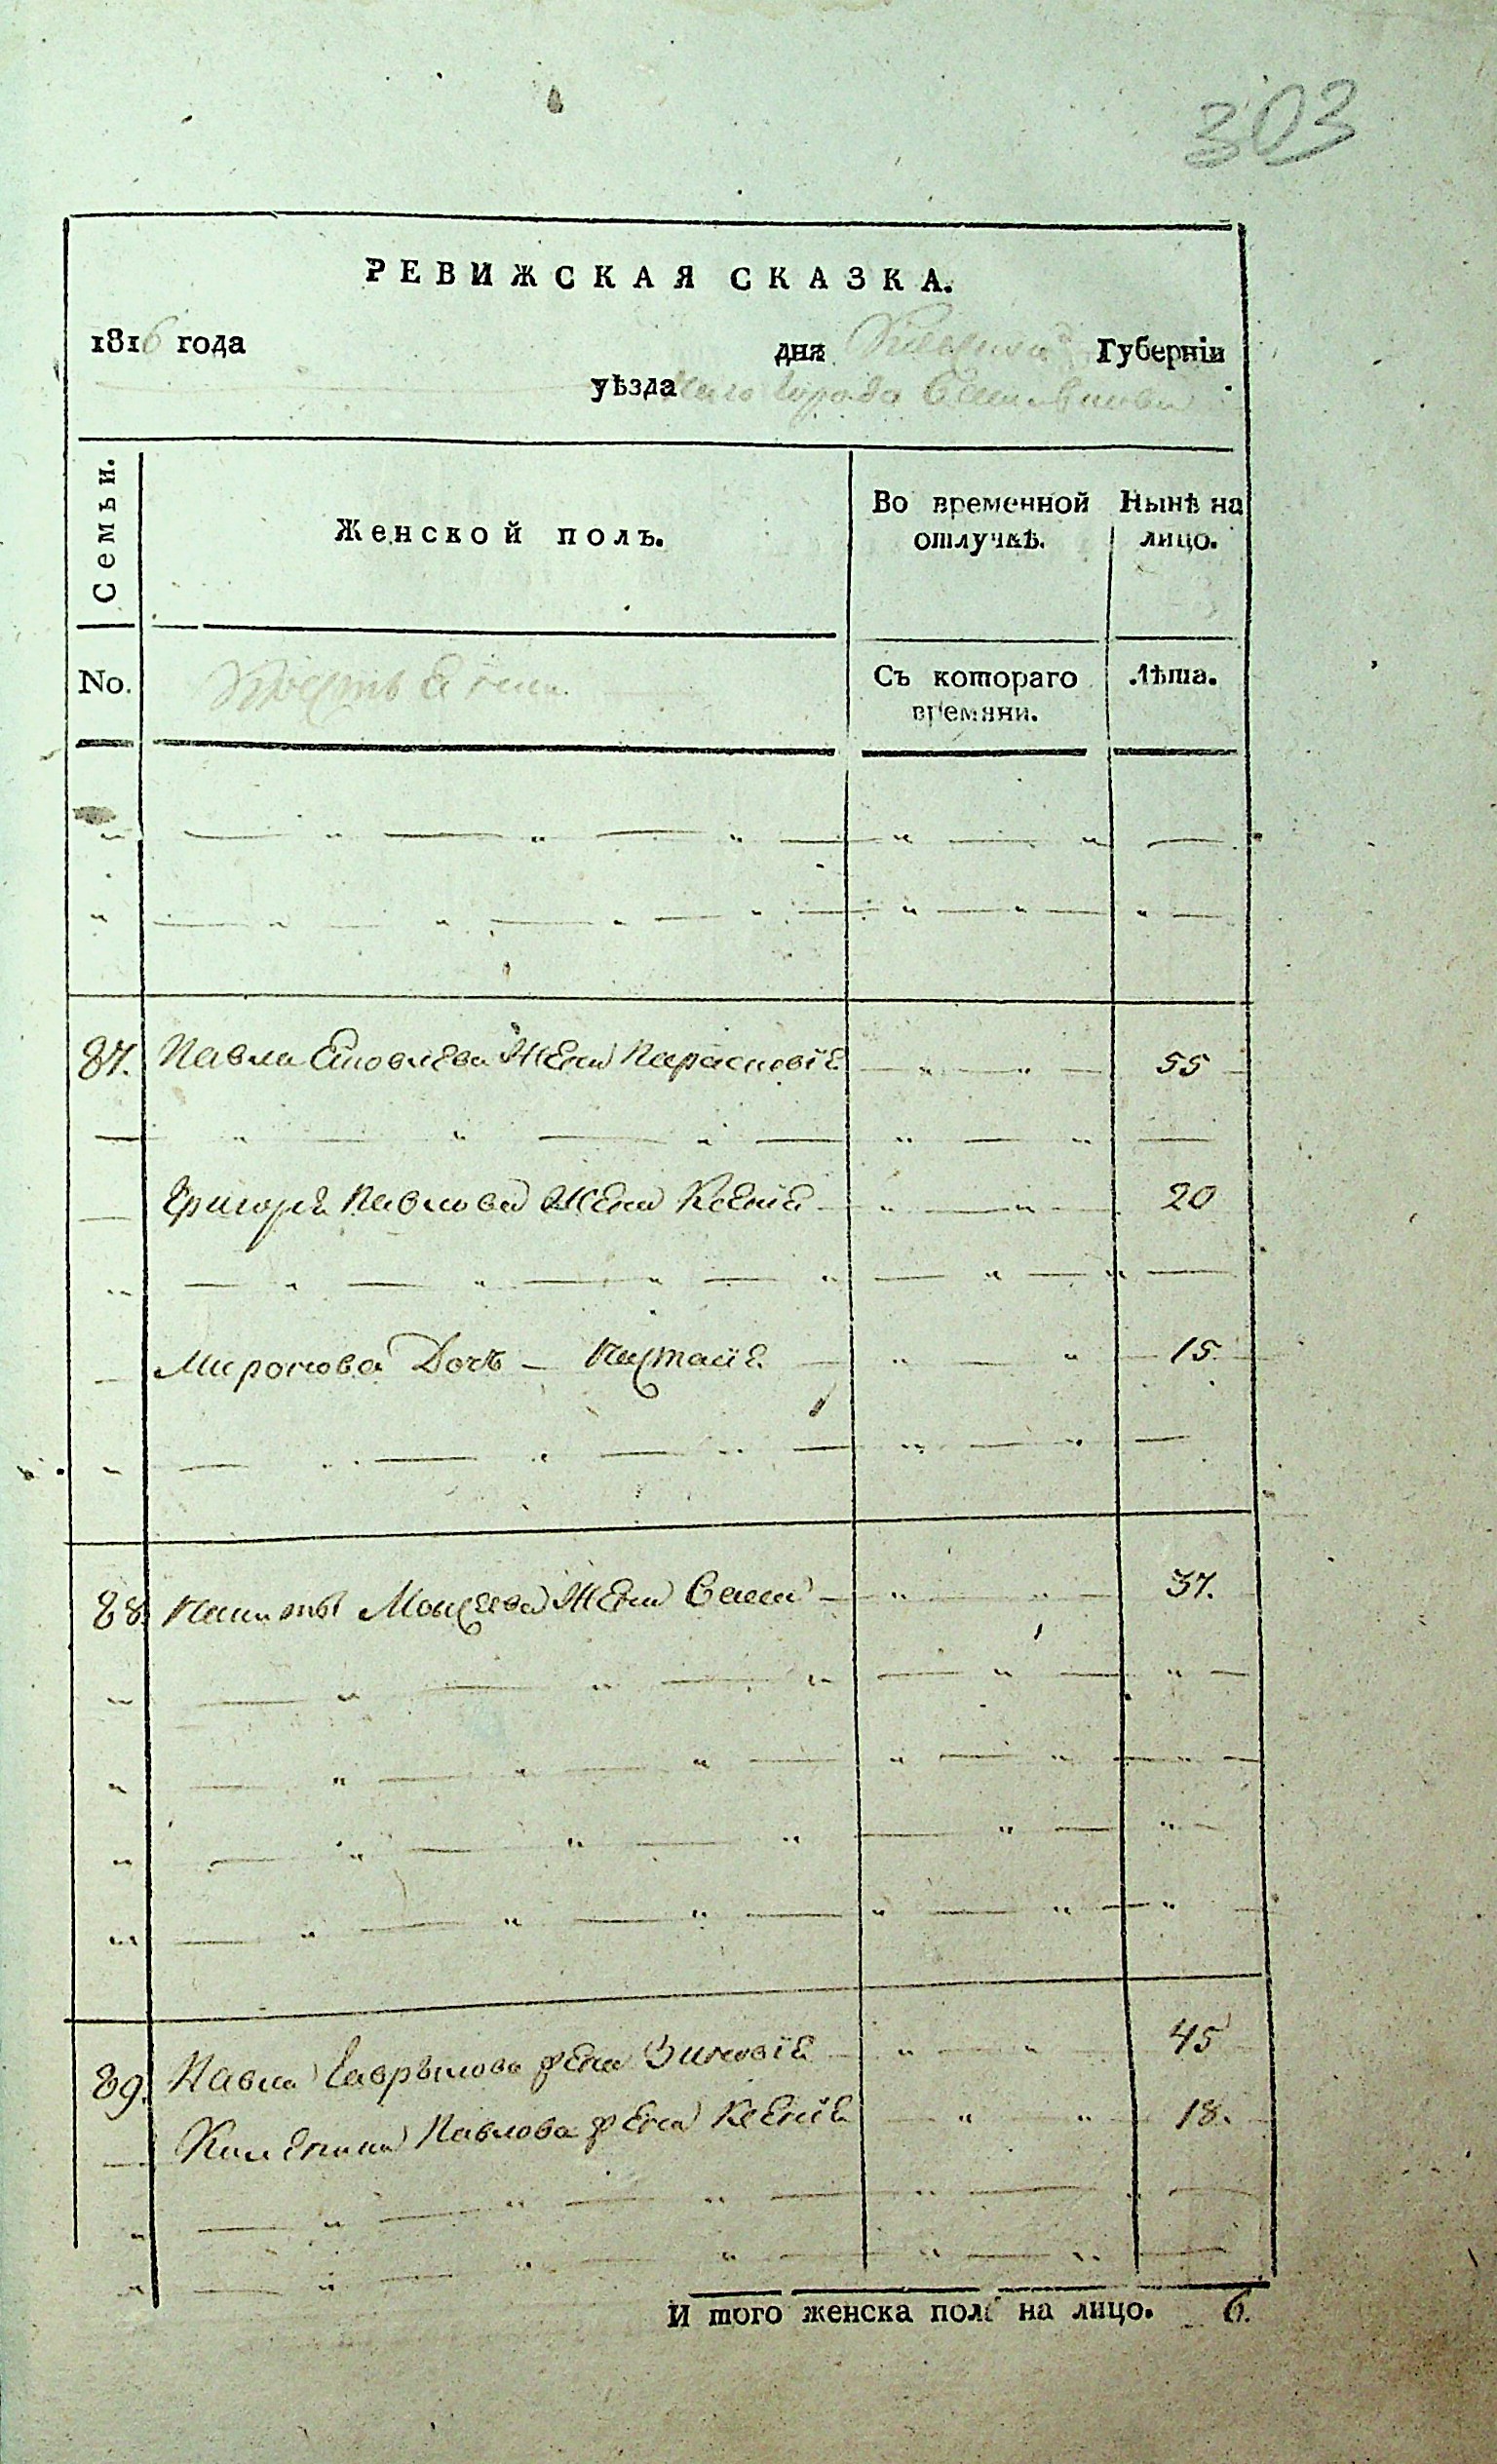 303
РЕВИЖСКАЯ СКАЗКА.
1816 года дня Губернiи
уѣзда города
Семьи. Женской полъ. Во временной отлучкѣ. Нынѣ на лицо.
No. Съ котораго времяни. Лѣта.
87. Павла Яковлева Жена Парасковiя 55
Григорiя Павлова Жена Ксенiя 20
Миронова Дочь Настасiя 15
88. Никиты Моисеева Жена 37.
89. Павла Гаврылова жена Зиновiя 45
Павлова жена Ксенiя 18.
И того женска пола на лицо. 6.